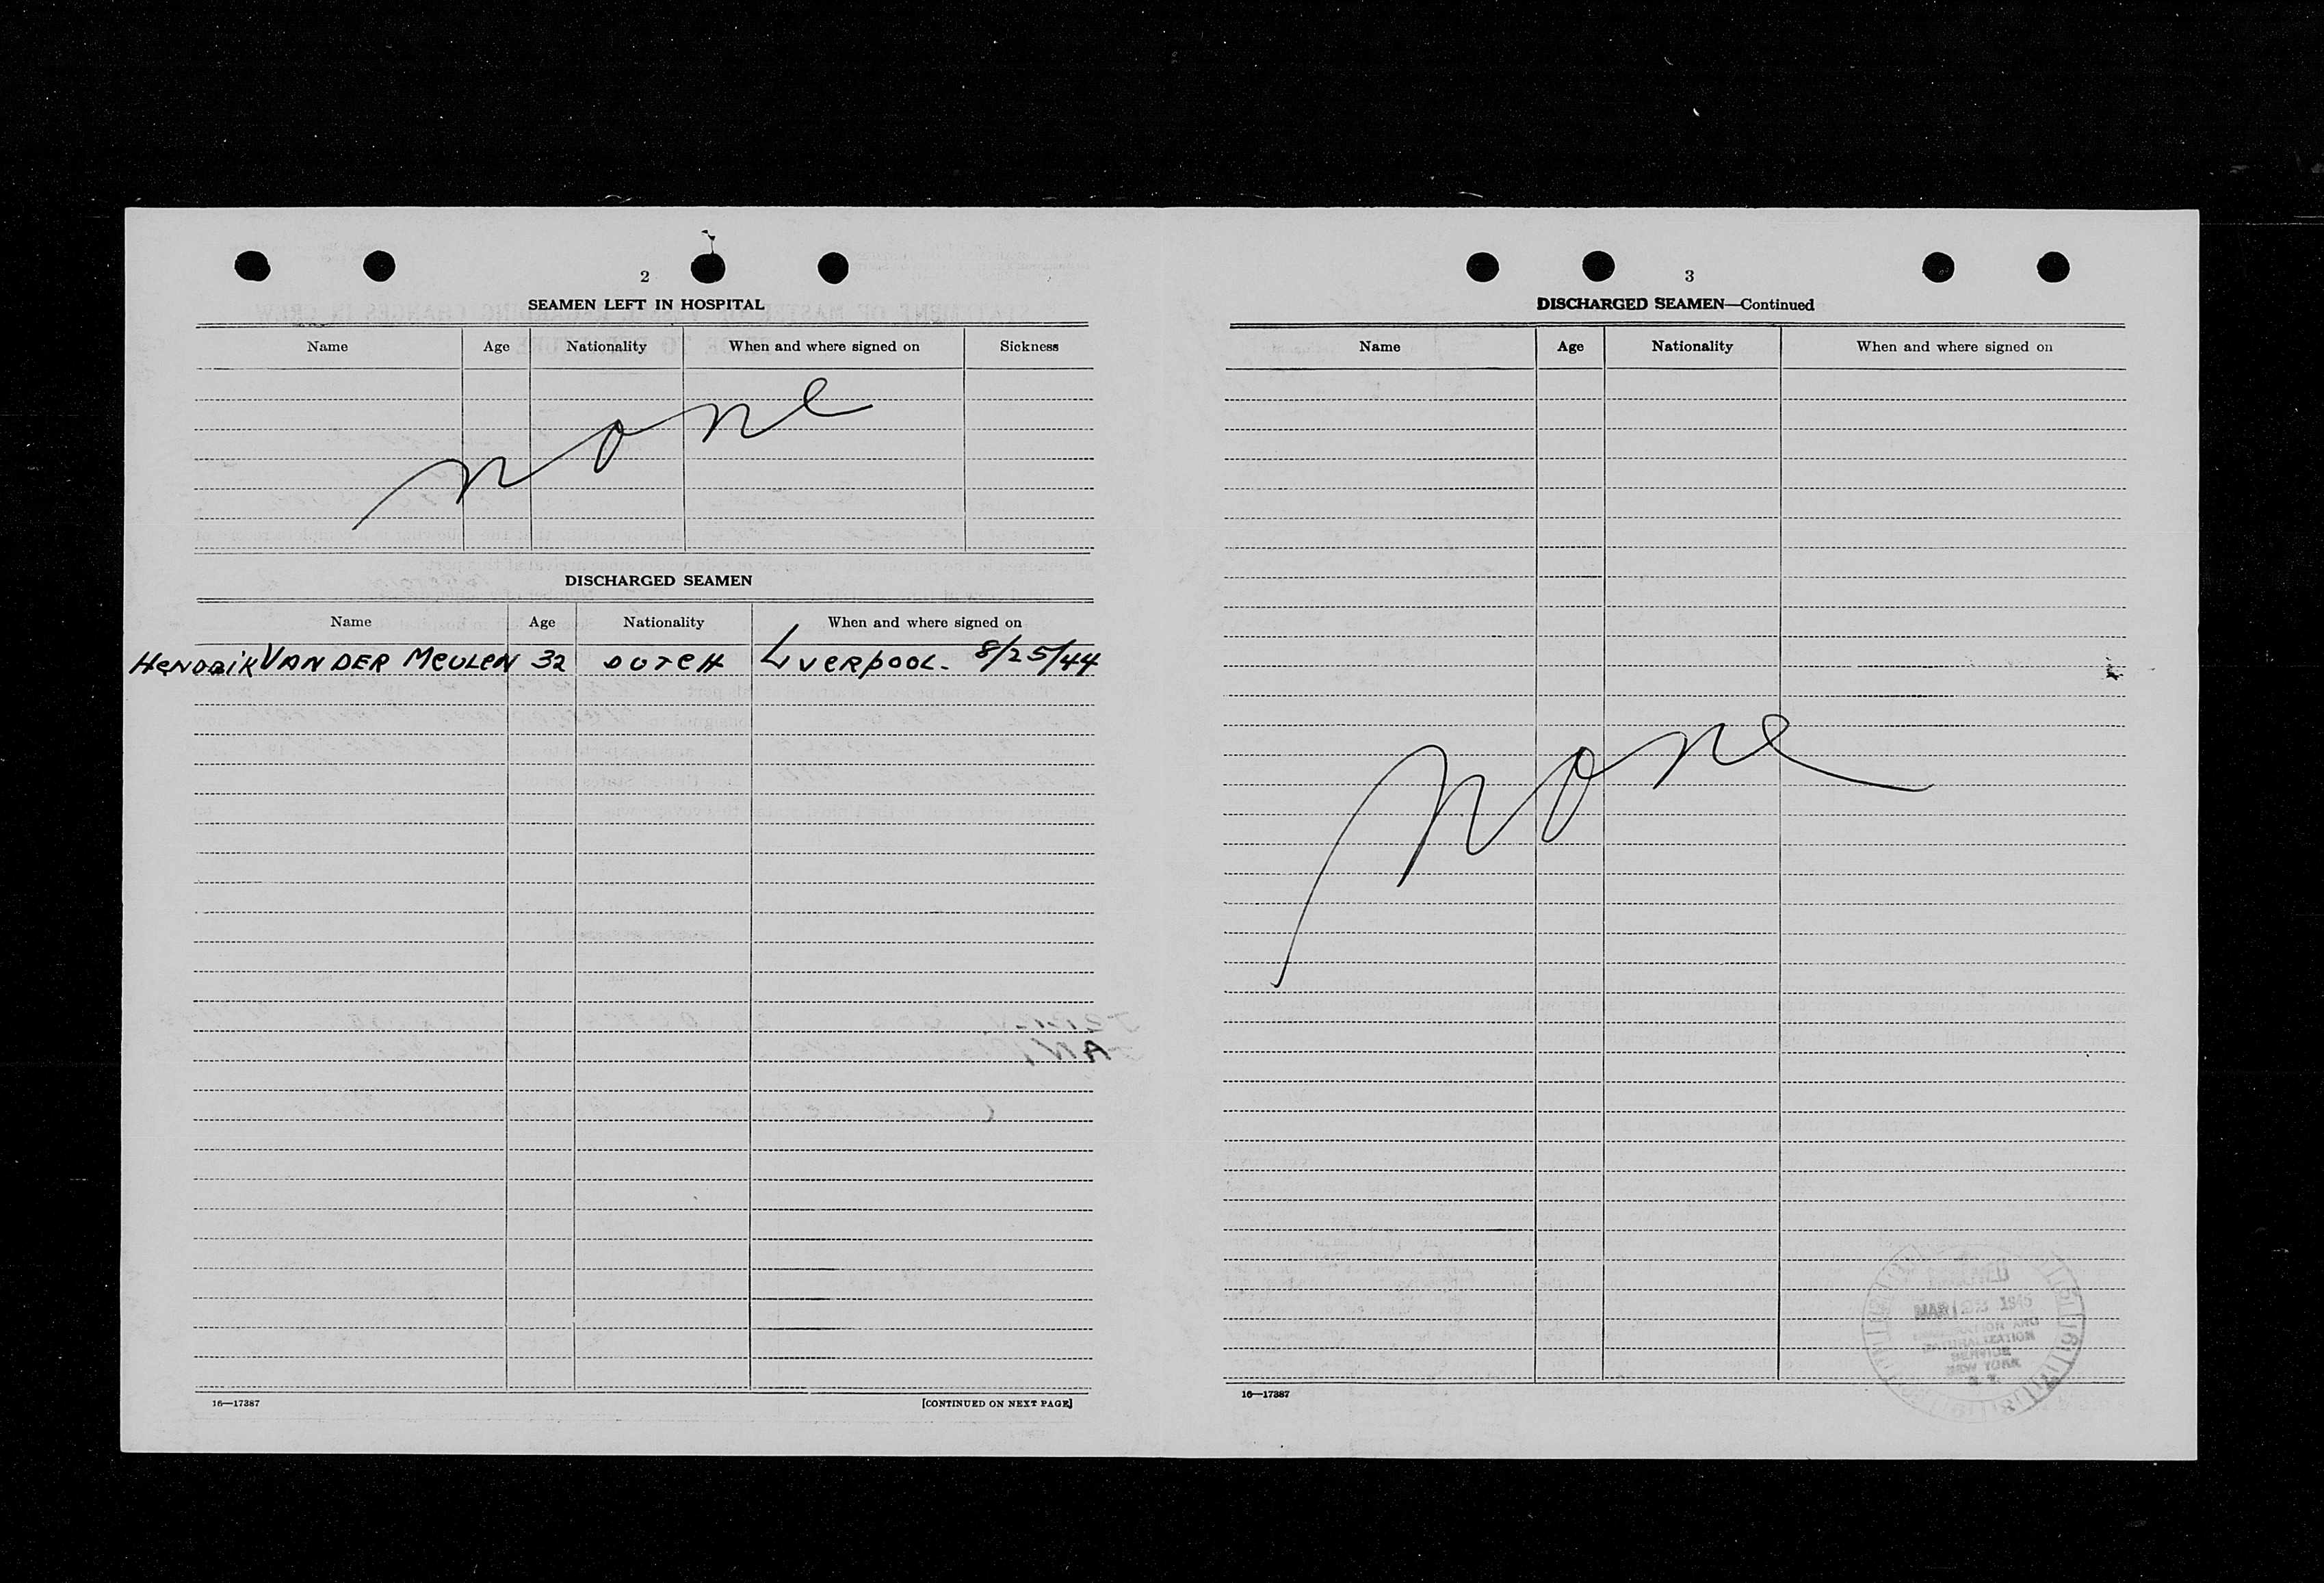 2
SEAMEN LEFT IN HOSPITAL
Name Age Nationality When and where signed on Sickness
None
DISCHARGED SEAMEN
Name Age Nationality When and where signed on
HENDRIK VAN DER MEULEN 32 DUTCH LIVERPOOL. 8/25/44
16—17387 [CONTINUED ON NEXT PAGE]
3
DISCHARGED SEAMEN—Continued
Name Age Nationality When and where signed on
None
MAR 1945
NATURALIZATION
SERVICE
NEW YORK
N. Y.
16—17387